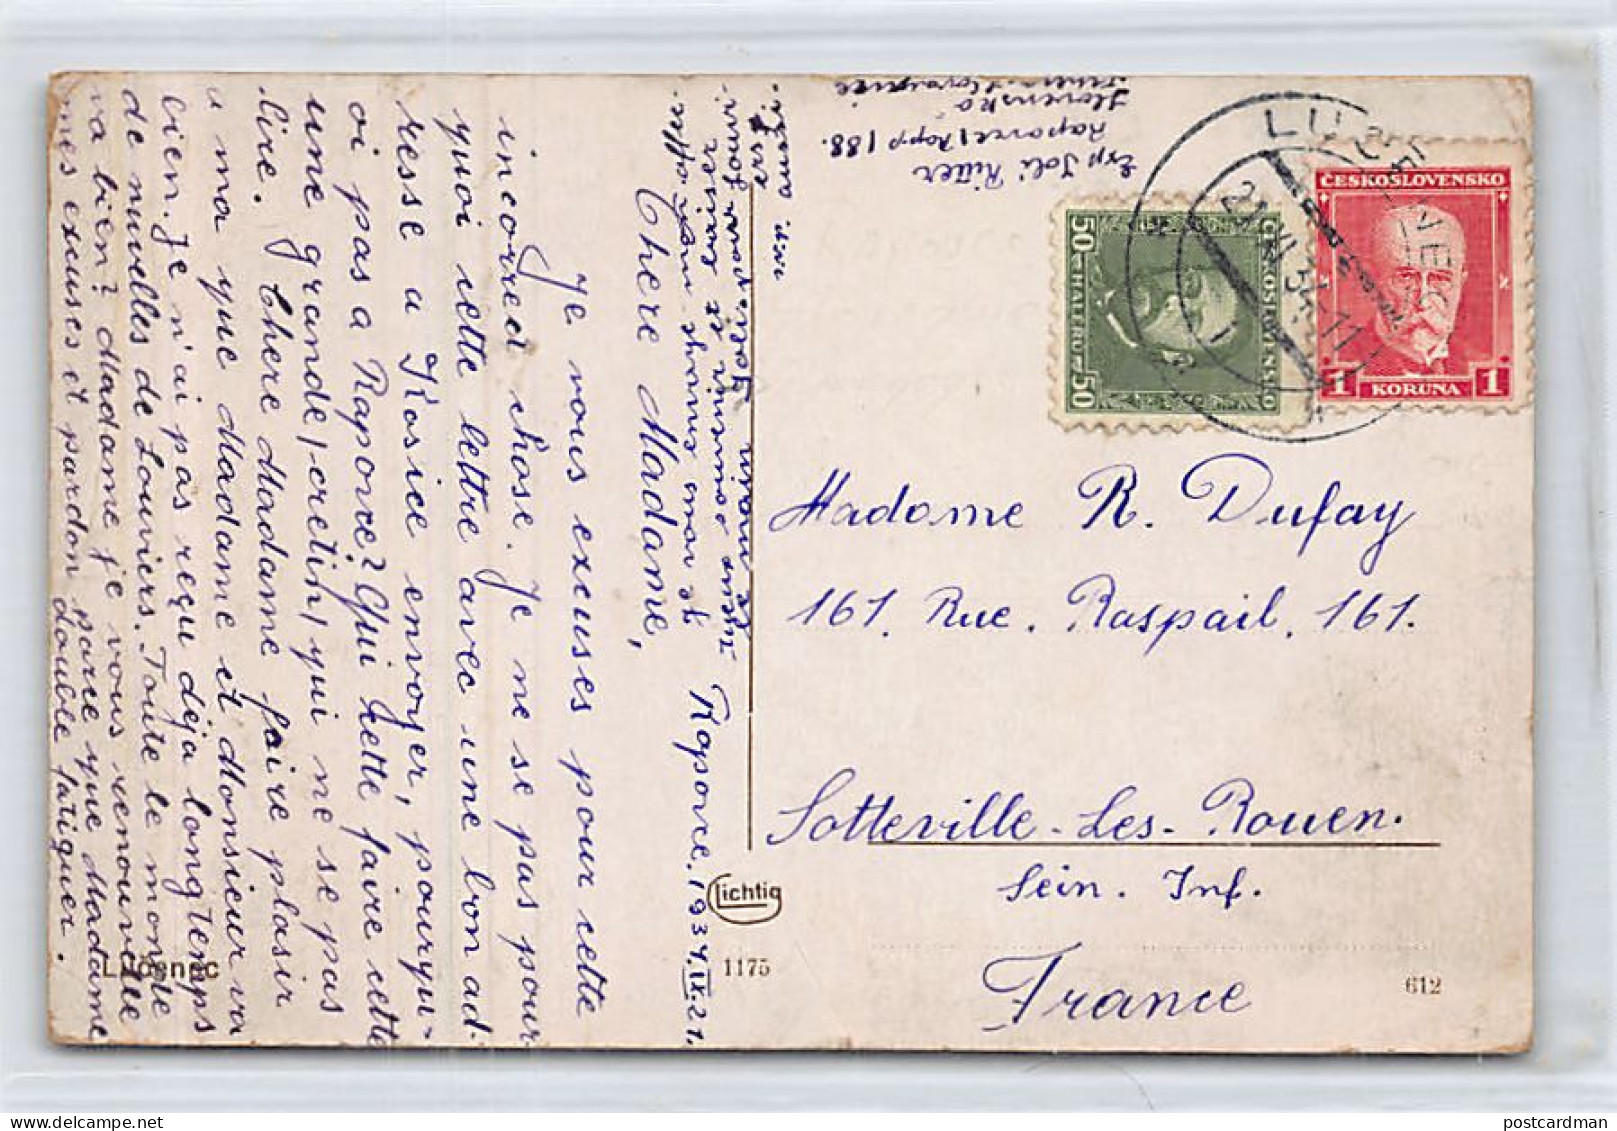 Rapovce. 1934.IX.21.
Chere Madame,
Je vous excuses pour cette
incorrect chose. Je ne se pas pour
quoi cette lettre avec une bon ad-
resse a Kosice envoyer, pourqu-
oi pas a Rapovce? Qui cette faire cette
une grande, cretin, qui ne se pas
lire. Chere Madame faire plasir
u ma que Madame et Monsieur va
bien. Je n'ai pas reçu deja long temps
de nuvelles de Louviers. Toute le monde
va bien? Madame je vous renouvelle
mes excuses et pardon parce que Madame
double fatiguer.
Exp Joli Ritter
Rapovce, Popp / 88.
Slovensko
LUČENEC
21.IX.34-11
ČESKOSLOVENSKO
1 KORUNA 1
ČESKOSLOVENSKO
50 HALÉŘŮ 50
Madame R. Dufay
161. Rue. Raspail. 161.
Sotteville-Les-Rouen.
Sein. Inf.
France
Lichtig
1175
612
Lučenec
postcardman